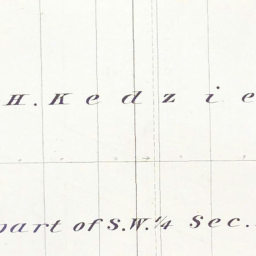 H. Kedzie
part of S.W. 1/4 Sec.